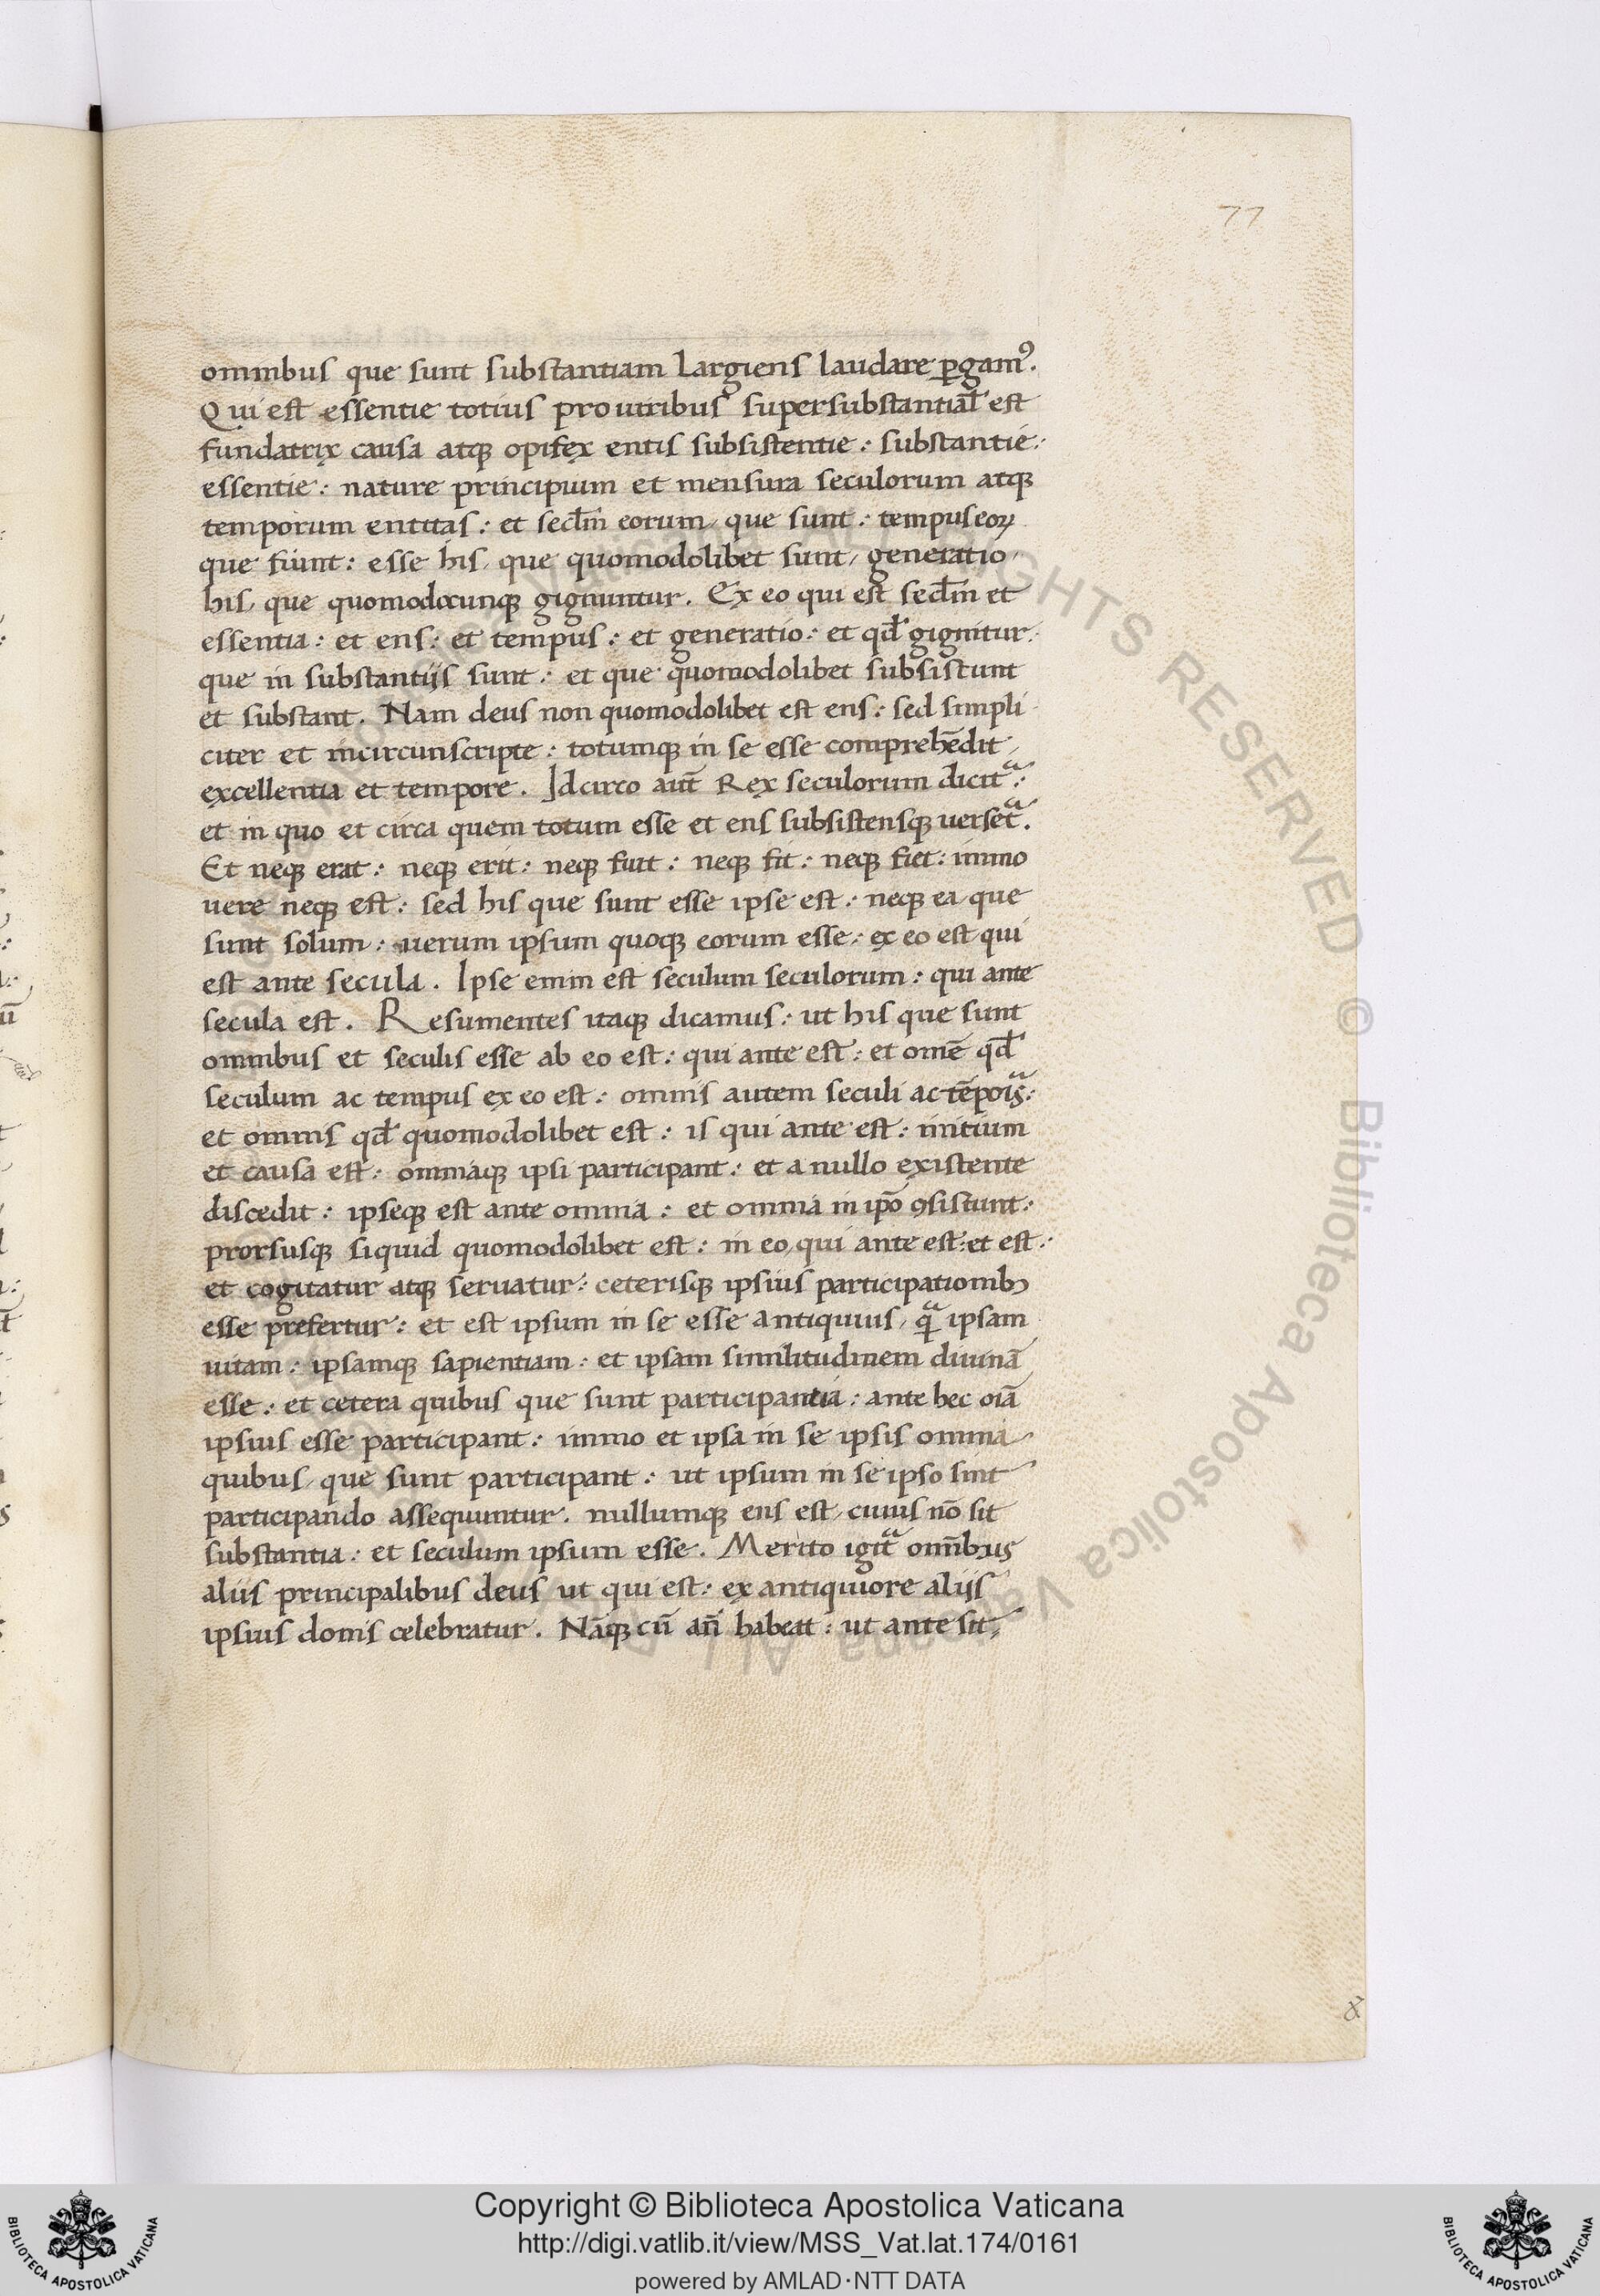 77
omnibus que sunt substantiam largiens laudare ꝑgamꝰ.
Qui est essentie totius pro uiribus supersubstantial̃ est
fundatrix causa atqꝫ opifex entis subsistentie: substantie:
essentie: nature principium et mensura seculorum atqꝫ
temporum entitas: et secl̃m eorum, que sunt: tempus eoꝝ
que fiunt: esse his, que quomodolibet sunt, generatio,
his, que quomodocunqꝫ gignuntur. Ex eo qui est secl̃m et
essentia: et ens: et tempus: et generatio: et qd̃ gignitur.
que in substantijs sunt: et que quomodolibet subsistunt
et substant. Nam deus non quomodolibet est ens: sed simpli
citer et incircunscripte: totumqꝫ in se esse compreħẽdit,
excellentia et tempore. Idcirco aut̃ Rex seculorum dicitᷓ:
et in quo et circa quem totum esse et ens subsistensqꝫ uersetᷓ.
Et neqꝫ erat: neqꝫ erit: neqꝫ fuit: neqꝫ fit: neqꝫ fiet: immo
uere neqꝫ est: sed his que sunt esse ipse est: neqꝫ ea que
sunt solum: uerum ipsum quoqꝫ eorum esse: ex eo est qui
est ante secula. Ipse enim est seculum seculorum: qui ante
secula est. Resumentes itaqꝫ dicamus: ut his que sunt
omnibus et seculis esse ab eo est: qui ante est: et omẽ qd̃
seculum ac tempus ex eo est: omnis autem seculi ac tẽpoisᷓ:
et omnis qd̃ quomodolibet est: is qui ante est: initium
et causa est: omniaqꝫ ipsi participant: et a nullo existente
discedit: ipseqꝫ est ante omnia: et omnia in ip̃o ꝯsistunt:
prorsusqꝫ siquid quomodolibet est: in eo, qui ante est: et est:
et cogitatur atqꝫ seruatur: ceterisqꝫ ipsius participationibꝫ
esse prefertur: et est ipsum in se esse antiquius, qᷓ ipsam
uitam: ipsamqꝫ sapientiam: et ipsam similitudinem diuinã
esse: et cetera quibus que sunt participantia: ante hec oiã
ipsius esse participant: immo et ipsa in se ipsis omnia
quibus, que sunt participant: ut ipsum in se ipso sint
participando assequuntur. nullumqꝫ ens est, cuius nõ sit
substantia: et seculum ipsum esse. Merito igitᷓ omñibus
aliis principalibus deus ut qui est: ex antiquiore alijs
ipsius donis celebratur. Nãqꝫ cũ añ habeat: ut ante sit,
Copyright © Biblioteca Apostolica Vaticana
http://digi.vatlib.it/view/MSS_Vat.lat.174/0161
powered by AMLAD·NTT DATA